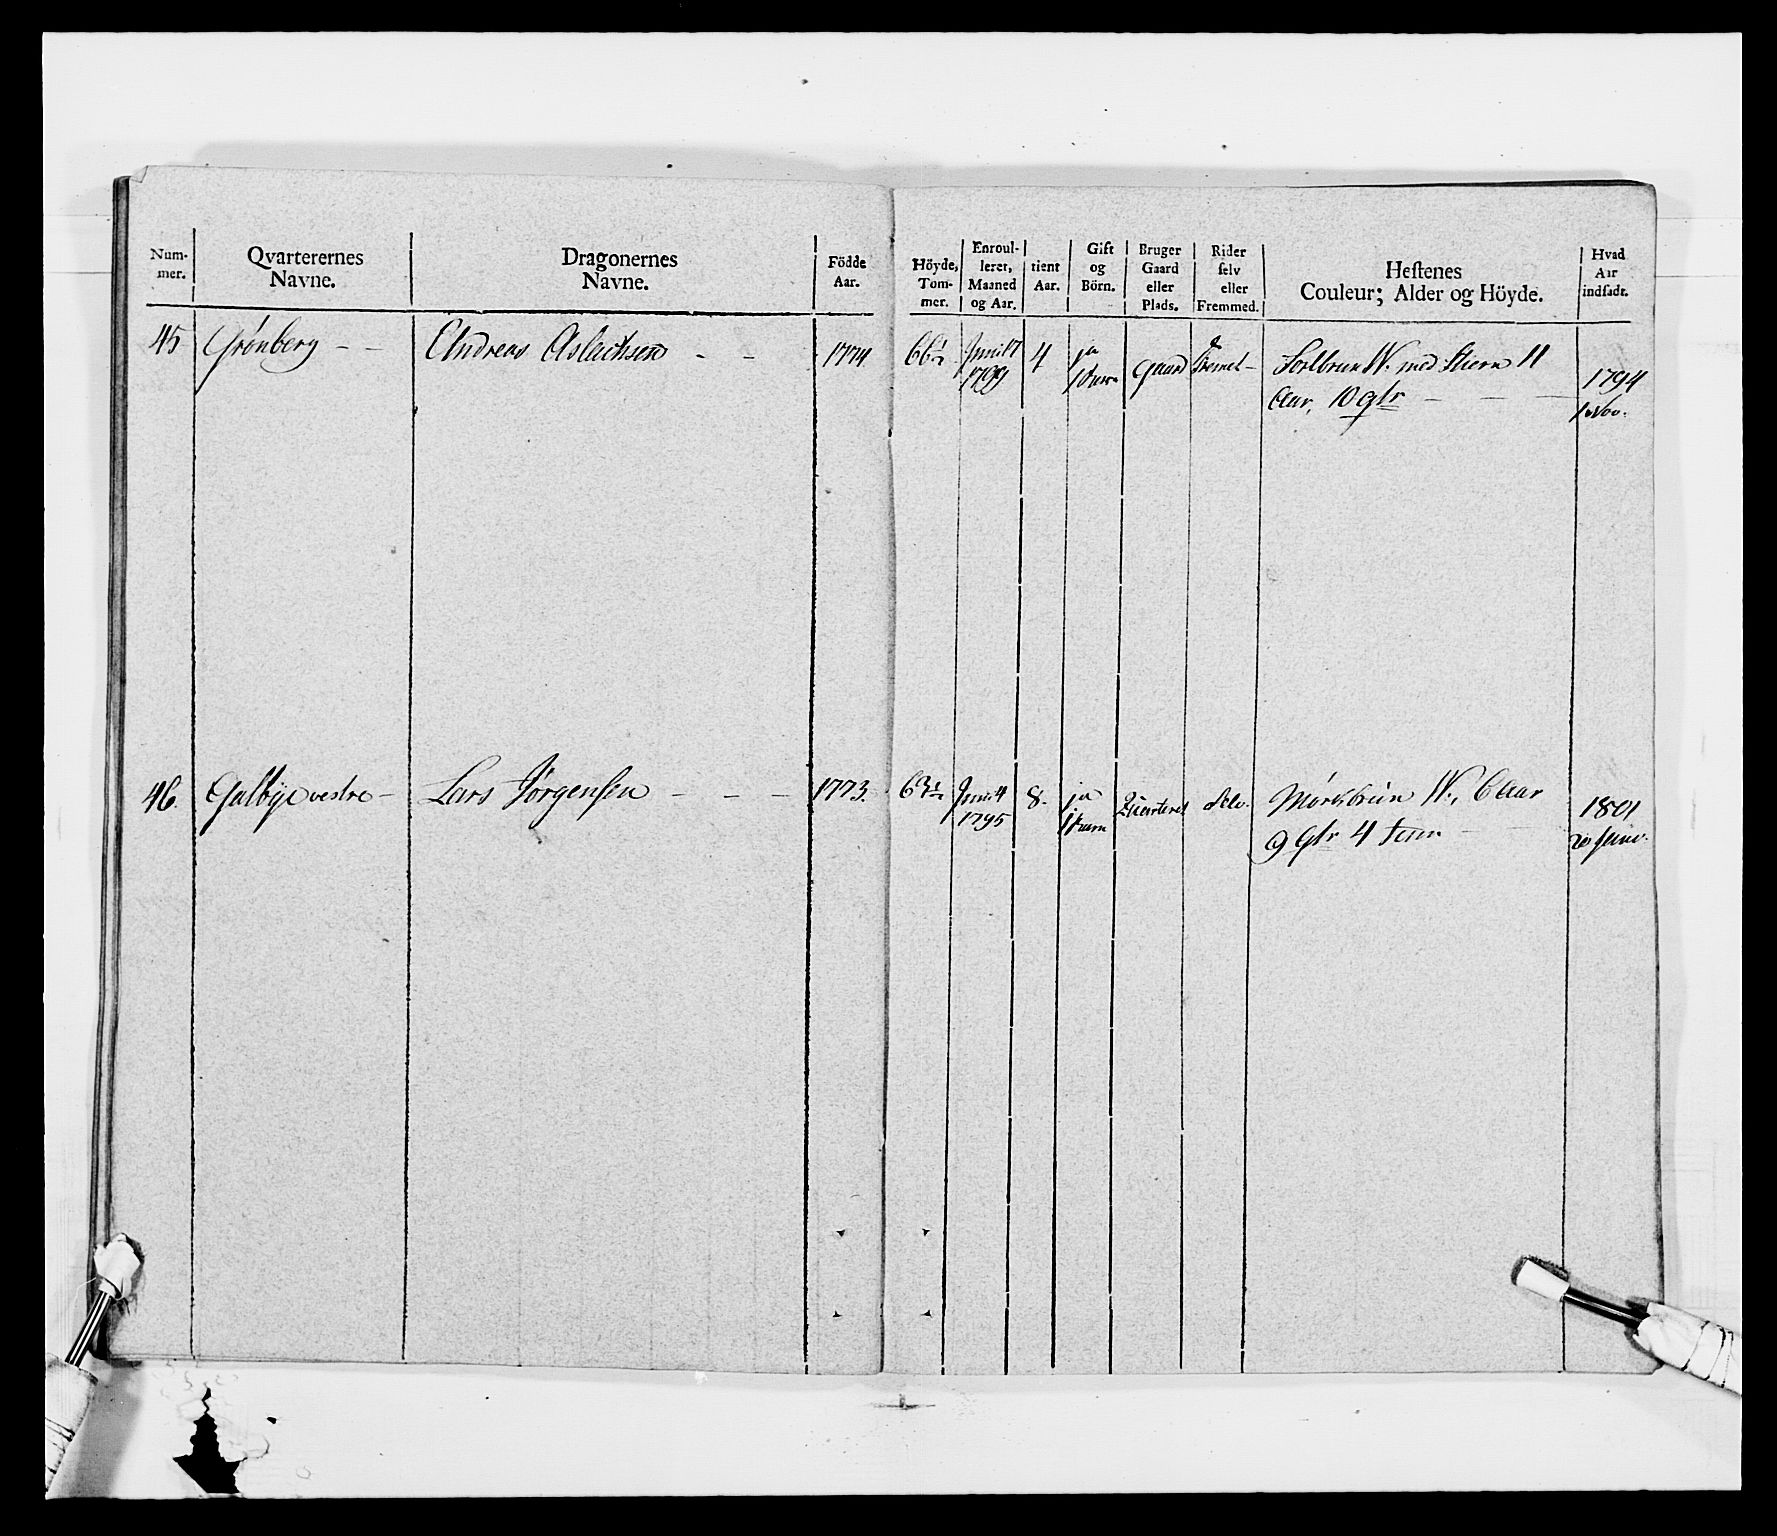 Num-
mer.
Qvarterernes
Navne.
Dragonernes
Navne.
Födde
Aar.
Höyde,
Tom-
mer.
Enroul-
leret,
Maaned
og Aar.
tient
Aar.
Gift
og
Börn.
Bruger
Gaard
eller
Plads.
Rider
selv
eller
Fremmed.
Hestenes
Couleur; Alder og Höyde.
Hvad
Aar
indsadt.
45 Grönberg - - Andreas Aslachsen - - 1774 66½ 17 4 ja gaard fremet - Sortbrun W. med Stiern 11
1799 1 barn 1794
Aar, 10 qtr - - - 1 Nov.
46. Galbye vestre - Lars Jörgensen - - - - 1773. 4 8. ja Quarteret selv. Mörkbrun W., 6 Aar
1795 1 barn 1801
9 qtr 4 tom - - 20